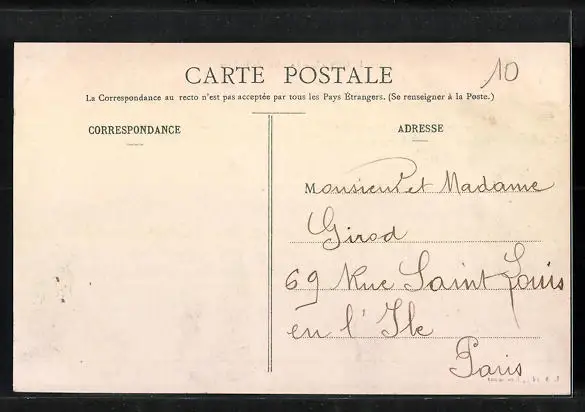 CARTE POSTALE
10
La Correspondance au recto n'est pas acceptée par tous les Pays Étrangers. (Se renseigner à la Poste.)
CORRESPONDANCE
ADRESSE
Monsieur et Madame
Girod
69 Rue Saint Louis
en l'Ile
Paris